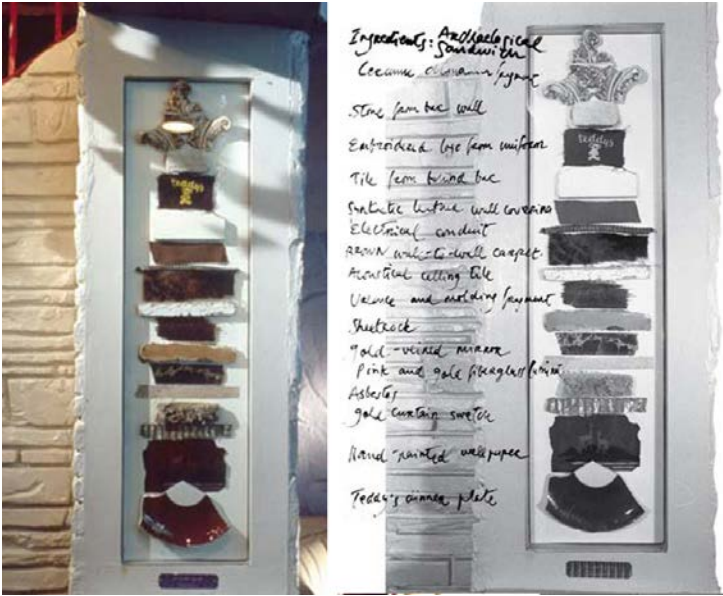 Ingredients: Archaeological
Sandwich
Ceramic
Stone from bar wall
Embroidered logo from uniform
Tile from behind bar
Synthetic leather wall covering
Electrical conduit
BROWN wall-to-wall carpet.
Acoustical ceiling tile
Valence and molding fragment
Sheetrock
gold-veined mirror
Pink and gold fiberglass
Asbestos
gold curtain swatch
Hand-painted wallpaper
Teddy's dinner plate
teddys
teddys